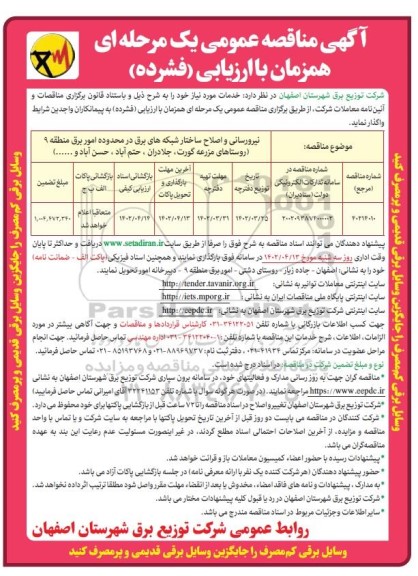 آگهی مناقصه عمومی یک مرحله ای
همزمان با ارزیابی (فشرده)
شرکت توزیع برق شهرستان اصفهان در نظر دارد: خدمات مورد نیاز خود را به شرح ذیل و باستناد قانون برگزاری مناقصات و
آئین نامه معاملات شرکت، از طریق برگزاری مناقصه عمومی یک مرحله ای همزمان با ارزیابی (فشرده) به پیمانکاران واجدین شرایط
واگذار نماید.
موضوع مناقصه:
نیرورسانی و اصلاح ساختار شبکه های برق در محدوده امور برق منطقه ۹
(روستاهای مزرعه کورت، جلادران، حتم آباد، حسن آباد و ......)
شماره مناقصه (مرجع)
شماره مناقصه در سامانه تدارکات الکترونیکی دولت (ستاد ایران)
تاریخ توزیع دفترچه
مهلت تهیه دفترچه
آخرین مهلت بارگذاری و تحویل پاکات
بازگشایی اسناد ارزیابی کیفی
بازگشایی پاکات الف ب ج
مبلغ تضمین
۱۴۰۲/۰۳/۲۵
۱۴۰۲/۰۳/۳۱
۱۴۰۲/۰۴/۱۳
۱۴۰۲/۰۴/۱۴
متعاقبا اعلام خواهد شد
پیشنهاد دهندگان می توانند اسناد مناقصه به شرح فوق را صرفا از طریق سایت www.setadiran.ir دریافت و حداکثر تا پایان
وقت اداری روز سه شنبه مورخ ۱۴۰۲/۰۴/۱۳ در سامانه فوق بارگذاری نمایند و همچنین اسناد فیزیکی (پاکت الف - ضمانت نامه)
خود را به نشانی: اصفهان - جاده زیار - روستای دشتی - امور برق منطقه ۹ - دبیرخانه امور تحویل نمایند.
سایت اینترنتی معاملات توانیر به نشانی: http://tender.tavanir.org.ir
سایت اینترنتی پایگاه ملی مناقصات ایران به نشانی: http://iets.mporg.ir
سایت اینترنتی شرکت توزیع برق شهرستان اصفهان به نشانی: http://eepdc.ir
جهت کسب اطلاعات بازرگانی با شماره تلفن ۳۴۱۲۲۰۵۱-۰۳۱ کارشناس قراردادها و مناقصات و جهت آگاهی بیشتر در مورد
مراحل عضویت در سامانه: مرکز تماس ۴۱۹۳۴-۰۲۱ دفتر ثبت نام: ۸۸۹۶۹۷۳۷-۰۲۱ و ۸۵۱۹۳۷۶۸-۰۲۱ تماس حاصل فرمائید.
نوع و مبلغ تضمین شرکت در مناقصه: در اسناد درج شده است.
* مناقصه گران جهت به روز رسانی مدارک و فعالیتهای خود، در سامانه برون سپاری شرکت توزیع برق شهرستان اصفهان به نشانی
*شرکت توزیع برق شهرستان اصفهان تغییر و اصلاح در اسناد مناقصه را تا ۷۲ ساعت قبل از بازگشایی پاکتها برای خود محفوظ می دارد.
* شرکت کنندگان در مناقصه می بایست دو روز قبل از آخرین تاریخ تحویل پاکتها با مراجعه به سایت شرکت و یا تماس با واحد
مناقصه و مزایده، از آخرین اصلاحات احتمالی اسناد مطلع گردند. در غیر اینصورت مسئولیت عدم رعایت این بند به عهده
مناقصه گران می باشد.
* پیشنهادات رسیده با حضور اعضاء کمیسیون معاملات باز و قرائت خواهد شد.
* حضور پیشنهاد دهندگان (هر شرکت کننده یک نفر با ارائه معرفی نامه) در جلسه بازگشایی پاکات آزاد می باشد.
* به مدارک، پیشنهادات و نامه های فاقد امضاء، مخدوش یا بعد از انقضاء مهلت مقرر واصل شود مطلقا ترتیب اثر داده نخواهد شد.
* شرکت توزیع برق شهرستان اصفهان در رد یا قبول کلیه پیشنهادات مختار می باشد.
* سایر اطلاعات و جزئیات مربوط در اسناد مناقصه مندرج می باشد.
روابط عمومی شرکت توزیع برق شهرستان اصفهان
وسایل برقی کم مصرف را جایگزین وسایل برقی قدیمی و پرمصرف کنید
وسایل برقی کم مصرف را جایگزین وسایل برقی قدیمی و پرمصرف کنید
وسایل برقی کم مصرف را جایگزین وسایل برقی قدیمی و پرمصرف کنید